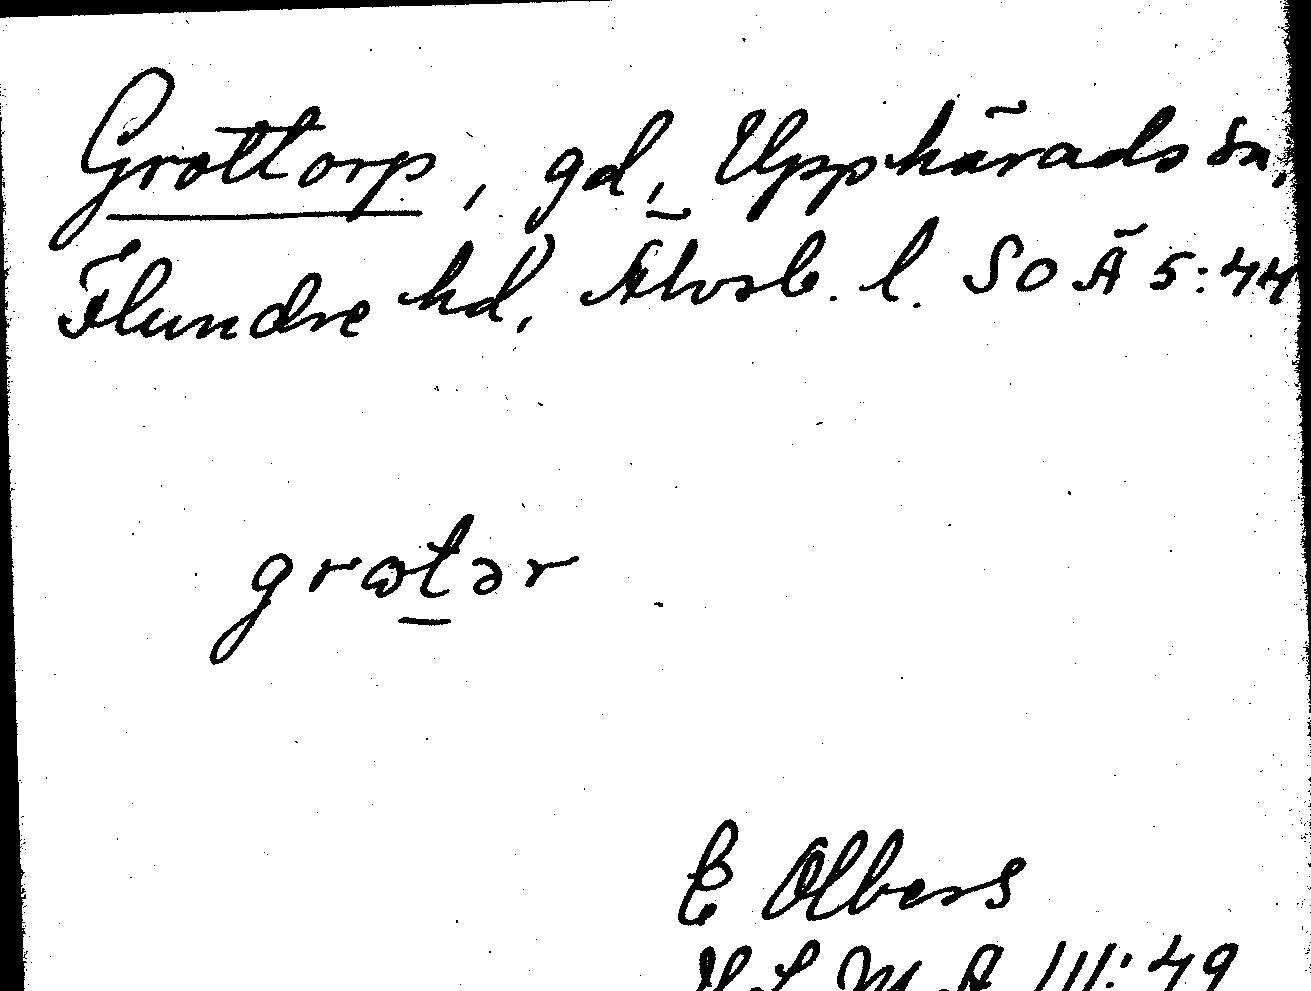 Grottorp, gd, Upphärads sn,
Flundre hd, Älvsb. l. SOÄ 5:44
grωtər
E Olbers